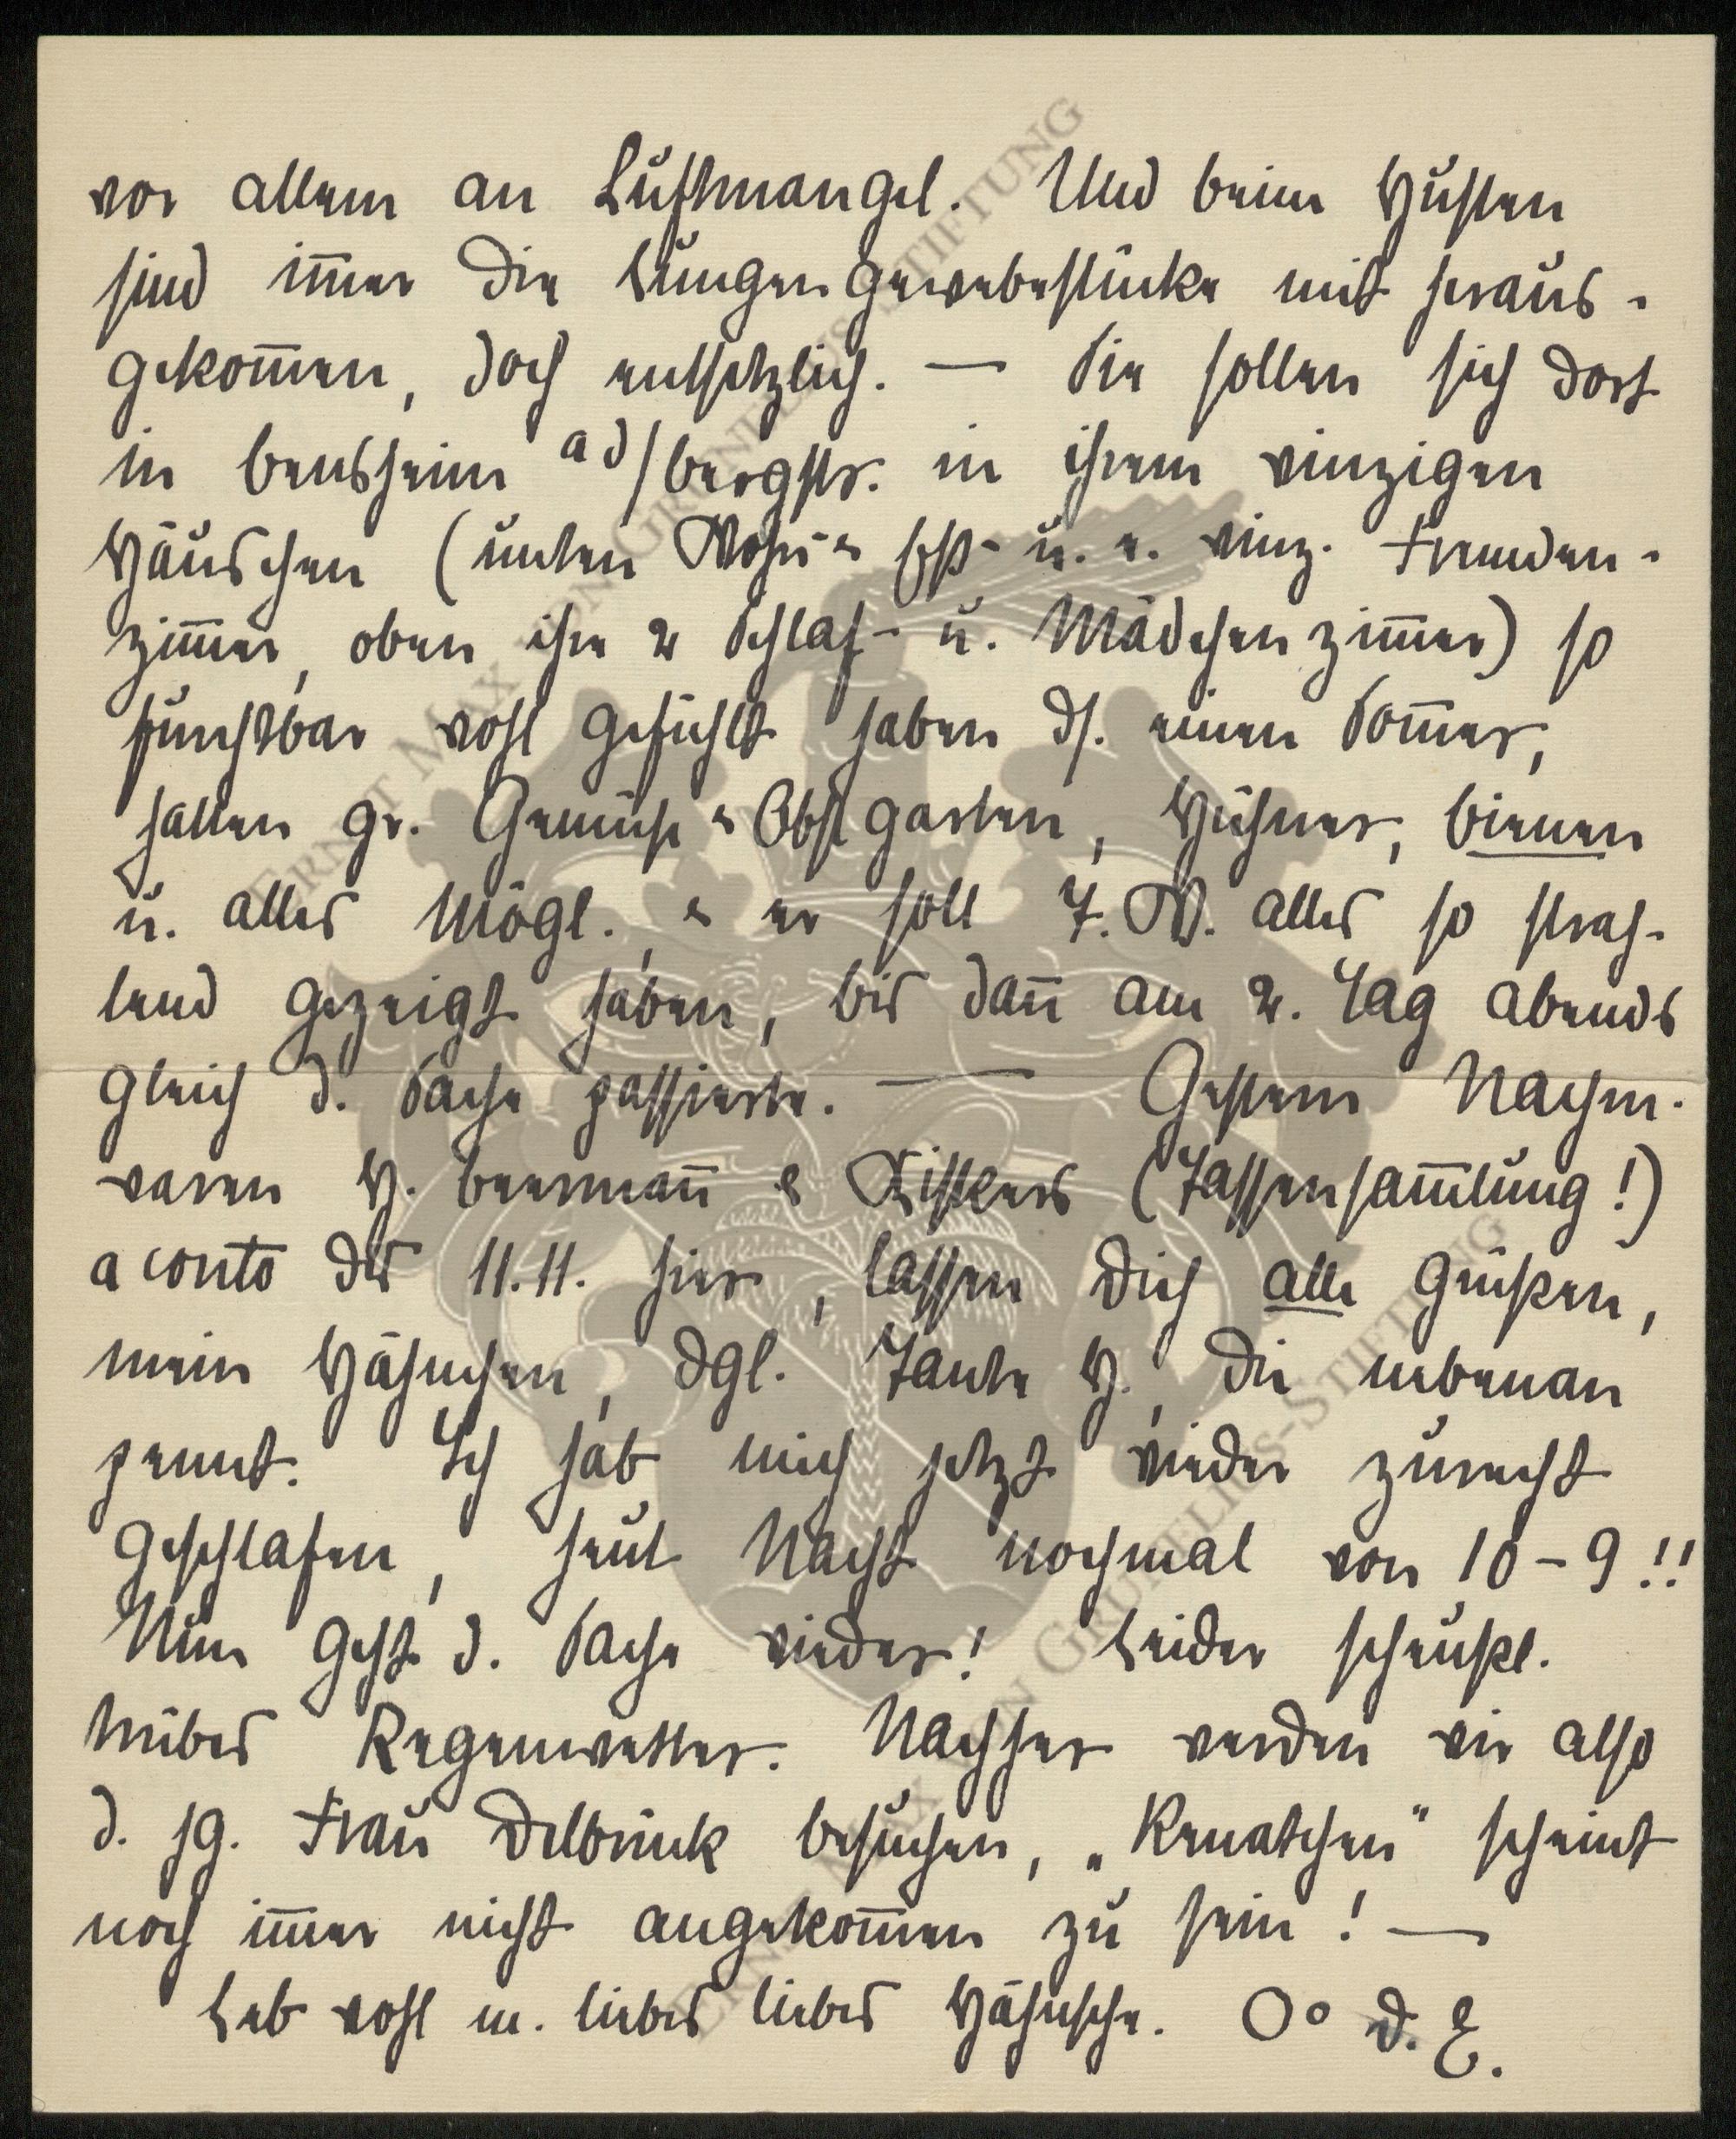 vor allem an Luftmangel. Und beim Husten
sind im̅er die Lungengewebestücke mit heraus-
gekom̅en, doch entsetzlich. — Sie sollen sich dort
in Bensheim a d/Bergstr. in ihrem einzigen
Häuschen (unten Wohn- & Eß- u. e. einz. Fremden-
zim̅er, oben ihre 2 Schlaf- u. Mädchenzim̅er) so
furchtbar wohl gefühlt haben ds. einen Som̅er,
hatten gr. Gemüse & Obstgarten, Hühner, Bienen
u. alles Mögl., & er soll T. W. alles so strah-
lend gezeigt haben, bis dan̅ am 2. Tag abends
gleich d. Sache passierte. — Gestern Nachm.
waren H. Beerman̅ & (Tassensam̅lung!)
a conto des 11.11. hier, lassen Dich alle grüßen,
mein Hähnchen, dgl. Tante H., die nebenan
pennt. Ich hab mich jetzt wieder zurecht
geschlafen, heut Nacht nochmal von 10 – 9!!
Nun geht d. Sache wieder! Leider scheußl.
trübes Regenwetter. Nachher werden wir also
d. jg. Frau Delbrück besuchen, „Renatchen" scheint
noch im̅er nicht angekom̅en zu sein! —
Leb wohl m. liebes liebes Hähnche. Oo d. E.
ERNST MAX VON GRUNELIUS-STIFTUNG
ERNST MAX VON GRUNELIUS-STIFTUNG